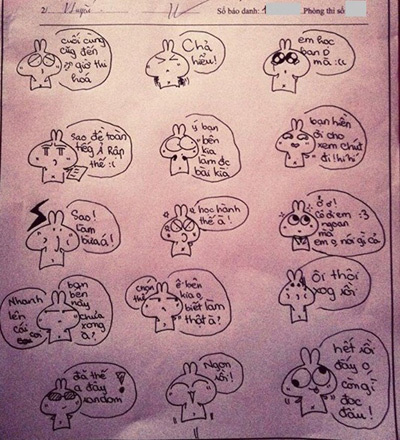 Số báo danh: 1
Phòng thi số
cuối cùng
cũg đến
giờ thi
hoá
Chả
hiểu!
em học
ban D
mà :((
sao đề toàn
tiếg Ả Rập
thế :(
ý bạn
bên
kia
làm đc
bài kìa
bạn hiền
ơi cho
xem chút
đi! hì hì
sao!
làm
bừa á!
học hành
thế à!
ơ ơ!
Cô ơi em :3
ngoan
mà
em o nói gì cả
Nhanh
lên
cái
coi
bạn
bên
này
chưa
xong
à?
chọn
thế
ê bên
kia o
biết làm
thật à?
ôi thôi
xog rồi
đã thế
a đây
random
Ngon
rồi!
hết rồi
đấy o
còn gì
đọc
đâu!